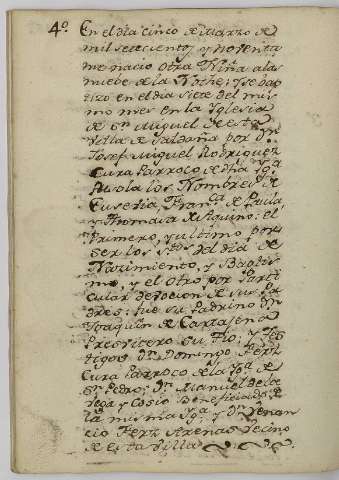 4º. En el dia cinco de Marzo de
mil setecientos y noventa
me nacio otra Niña a las
nuebe de la Noche; y se bap
tizo en el dia siete del mis
mo mes en la Iglesia
de Sn. Miguel de esta
Villa de Saldaña por Dn.
Josef Miguel Rodriguez
Cura Parroco de dha Yga.
Pusola los Nombres de
Eusebia Franca. de Paula,
y Thomasa de Aquino: el
Primero, y ultimo por
ser los Stos. del dia de
Nazimiento, y Baptis
mo, y el otro por Parti
cular devocion de sus Pa
dres: fue su Padrino Dn.
Joaquin de Cartajena
Presvitero su Tio; y Tes
tigos Dn. Domingo Ferz.
Cura Parroco de la Yga. de
Sn. Pedro; Dn. Manuel de la
Vega y Cosio Beneficiado de
la misma Yga. y Dn. Venan
cio Ferz. Arenas Vecino
de esta Villa